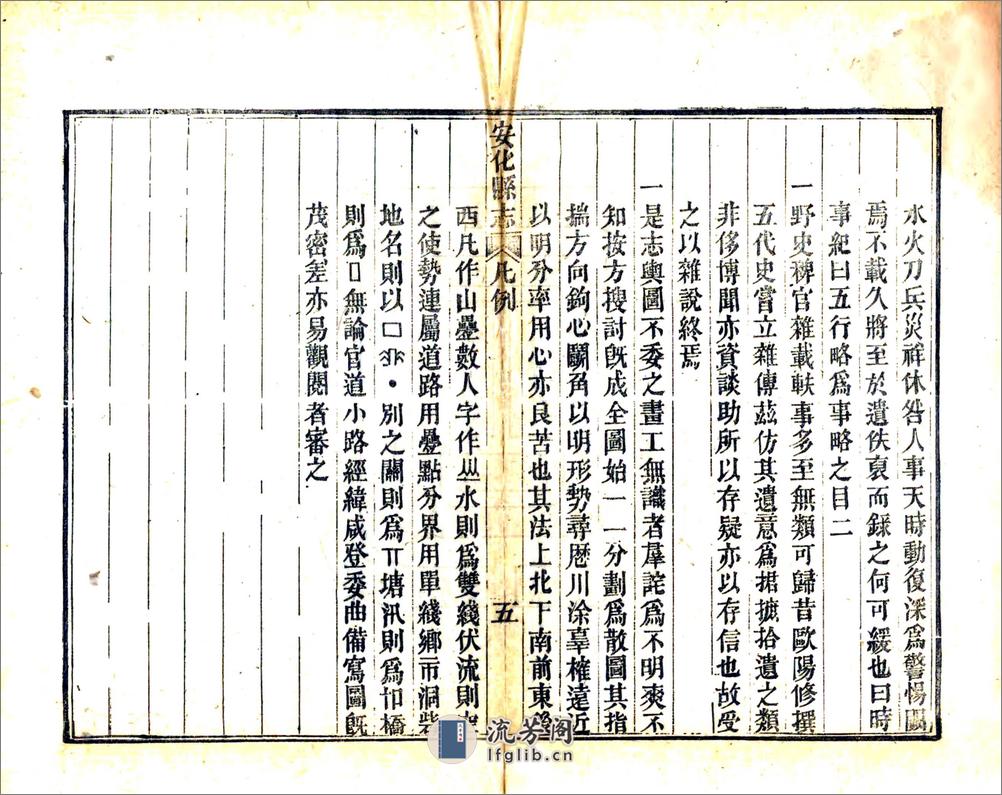 水火刀兵災祥休咎人事天時動復深爲警惕
焉不載久將至於遺佚裒而錄之何可緩也曰時
事紀曰五行略爲事略之目二
一野史稗官雜載軼事多至無類可歸昔歐陽修撰
五代史嘗立雜傳茲仿其遺意爲捃摭拾遺之類
非侈博聞亦資談助所以存疑亦以存信也故受
之以雜說終焉
一是志輿圖不委之畫工無識者羣詫爲不明爽不
知按方搜討旣成全圖始一一分劃爲散圖其指
揣方向鉤心鬭角以明形勢尋歷川涂辜榷遠近
以明分率用心亦良苦也其法上北下南前東
安化縣志 凡例 五
西凡作山疊數人字作从水則爲雙綫伏流則
之使勢連屬道路用疊點分界用單綫鄉市洞
地名則以口 • 別之關則爲丌塘汛則爲 橋
則爲 無論官道小路經緯咸登委曲備寫圖旣
茂密差亦易觀閱者審之
流芳阁
lfglib.cn